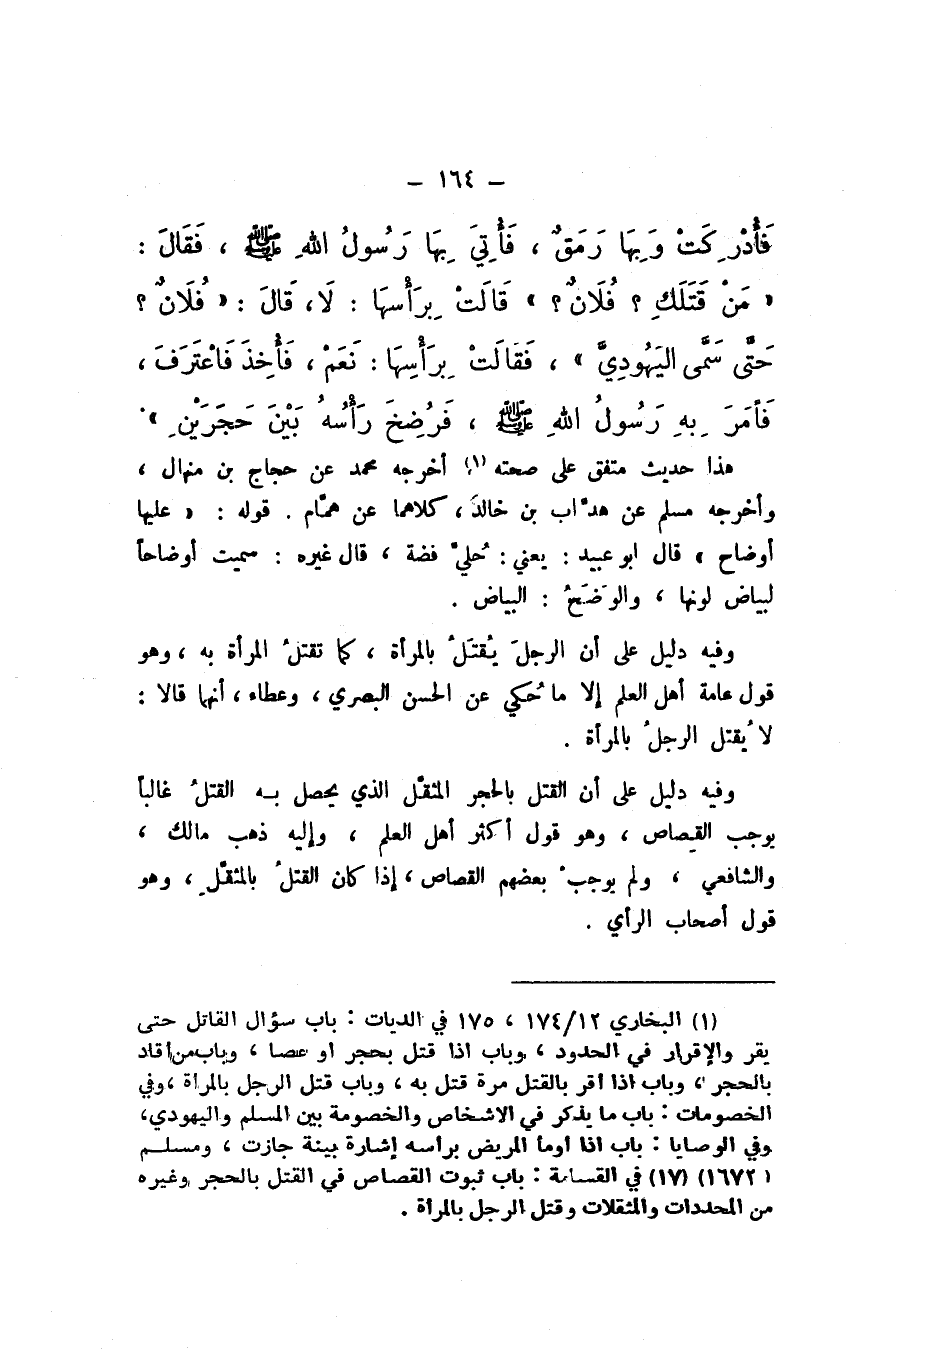 – ١٦٤ –
فَأُدْرِكَتْ وَبِهَا رَمَقٌ ، فَأُتِيَ بِهَا رَسُولُ اللهِ ﷺ ، فَقَالَ :
« مَنْ قَتَلَكِ ؟ فُلَانٌ ؟ » قَالَتْ بِرَأْسِهَا : لَا، قَالَ : « فُلَانٌ ؟
حَتَّى سَمَّى اليَهُودِيَّ » ، فَقَالَتْ بِرَأْسِهَا : نَعَمْ ، فَأُخِذَ فَاعْتَرَفَ ،
فَأَمَرَ بِهِ رَسُولُ اللهِ ﷺ ، فَرُضِخَ رَأْسُهُ بَيْنَ حَجَرَيْنِ » .
هذا حديث متفق على صحته (١) أخرجه محمد عن حجاج بن منهال ،
وأخرجه مسلم عن هدّاب بن خالد ، كلاهما عن همّام . قوله : « عليها
أوضاح » قال ابو عبيد : يعني : حُليّ فضة ، قال غيره : سميت أوضاحاً
لبياض لونها ، والوَضَحُ : البياض .
وفيه دليل على أن الرجلَ يُقتَلُ بالمرأة ، كما تقتلُ المرأة به ، وهو
قول عامة أهل العلم إلا ما حُكي عن الحسن البصري ، وعطاء ، أنها قالا :
لا يُقتل الرجلُ بالمرأة .
وفيه دليل على أن القتل بالحجر المثقّل الذي يحصل به القتلُ غالباً
يوجب القصاص ، وهو قول أكثر أهل العلم ، وإليه ذهب مالك ،
والشافعي ، ولم يوجبْ بعضهم القصاص ، إذا كان القتلُ بالمثقّلِ ، وهو
قول أصحاب الرأي .
(١) البخاري ١٧٤/١٢ ، ١٧٥ في الديات : باب سؤال القاتل حتى
يقر والإقرار في الحدود ، وباب اذا قتل بحجر او عصا ، وباب من أقاد
بالحجر ، وباب اذا أقر بالقتل مرة قتل به ، وباب قتل الرجل بالمرأة ، وفي
الخصومات : باب ما يذكر في الاشخاص والخصومة بين المسلم واليهودي،
وفي الوصايا : باب اذا أومأ المريض برأسه إشارة بينة جازت ، ومسلم
(١٦٧٢) (١٧) في القسامة : باب ثبوت القصاص في القتل بالحجر وغيره
من المحددات والمثقلات وقتل الرجل بالمرأة .